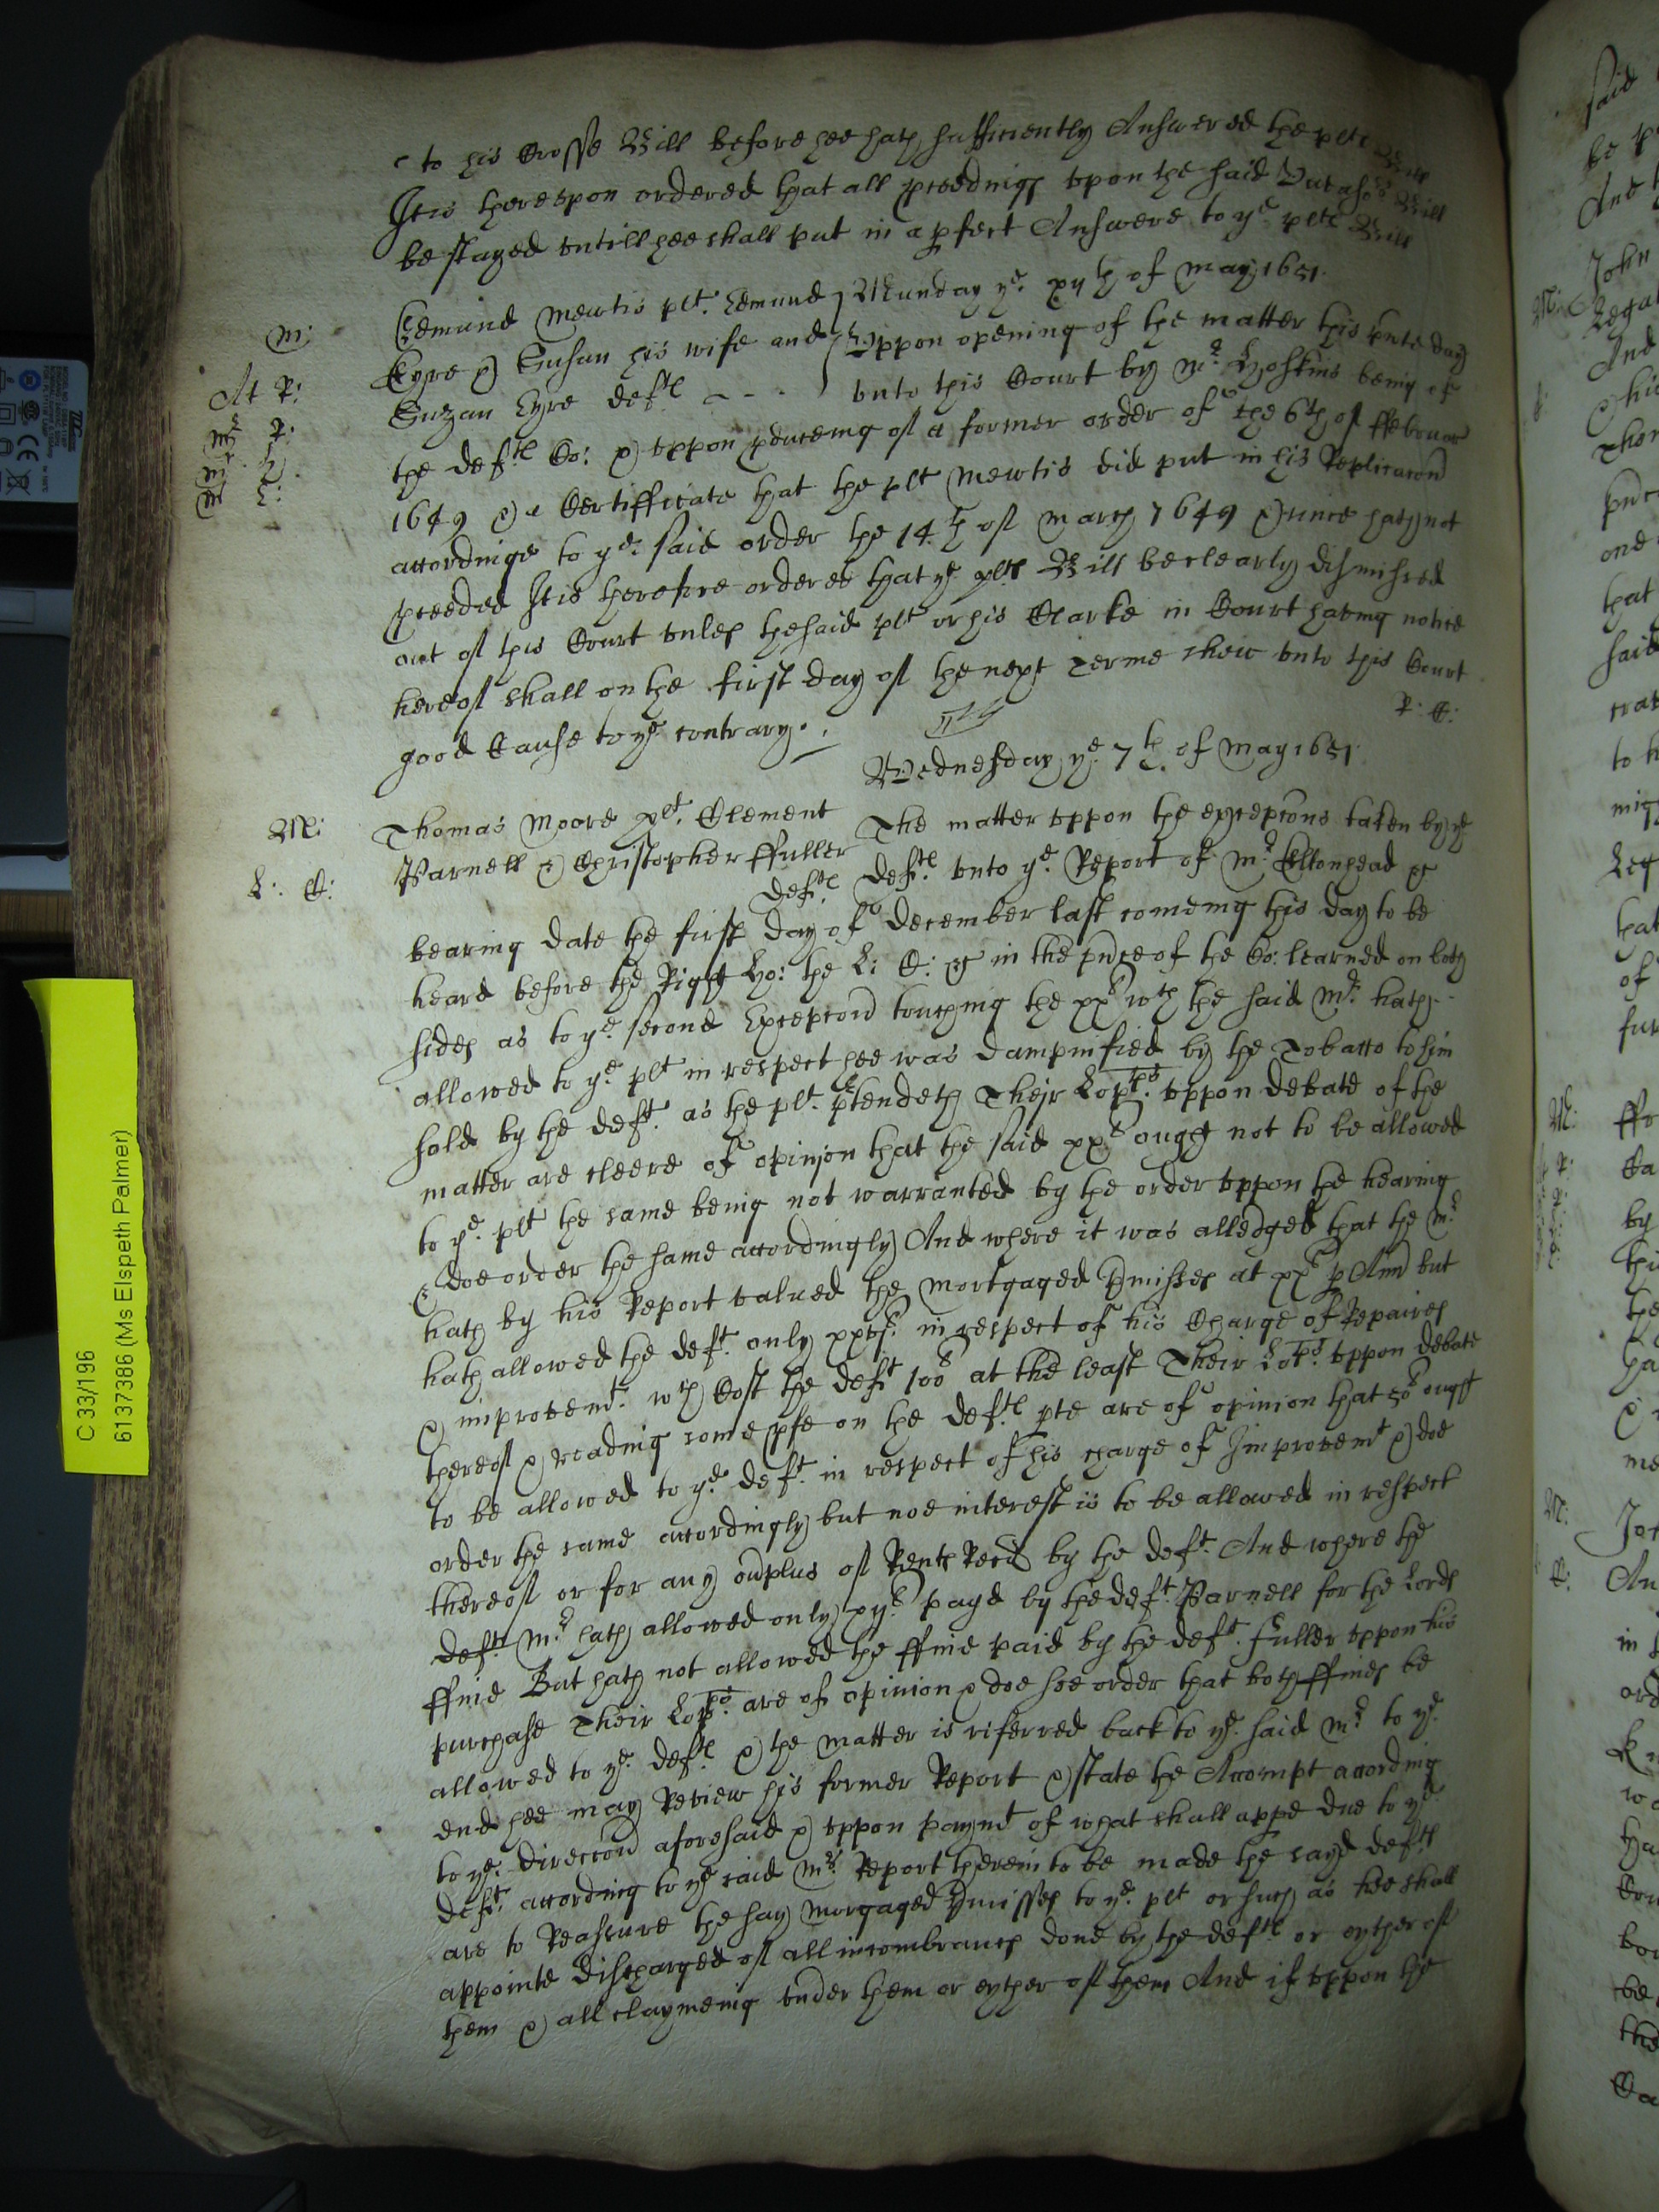 to his Crosse Bill before hee hath sufficiently Answered the plts Bill
It is thereupon ordered that all pceedings upon the said Bill
be stayed untill hee shall put in a pfect Answere to ye plts Bill
M:
Edmund Mewtis plt. Edmund } Munday ye xijth of May 1651
At R:
Eyre & Susan his wife and } Uppon opening of the matter this pnte day
Suzan Eyre defts - - - } unto this Court by Mr Hoskins being of
the defts Co: & uppon pduceing of a former order of the 6th of ffebruar
1649 & a Certifficate that the plt Mewtis did put in his Replicacon
accordinge to ye said order the 14th of March 1649 & since hath not
pceeded It is therefore ordered that ye plts Bill be clearly dismissed
out of this Court unles the said plt or his Clarke in Court haveing notice
hereof shall on the first day of the next Terme shew unto this Court
good Cause to ye contrary.
R: C:
Wednesday ye 7th of May 1651
M:
Thomas Moore plt. Clement
Parnell & Christopher ffuller
defts
L: C:
The matter uppon the excepcons taken by ye
defts unto ye Report of Mr Ellonhead &c
bearing date the first day of December last comeing this day to be
heard before the Right Ho: the L: C: &c in the pnce of the Co: learned on both
sides as to ye second Excepcon touching the xxli wch the said Mr hath
allowed to ye plt in respect hee was dampnified by the Tobacco to him
sold by the deft. as the plt. ptendeth Their Lopps. uppon debate of the
matter are cleere of opinion that the said xxli ought not to be allowed
to ye plt the same being not warranted by the order uppon the hearing
& doe order the same accordingly And where it was alledged that the Mr
hath by his Report valued the mortgaged pmisses at xxli p Ann but
hath allowed the deft. only in respect of his Charge of Repaires
& improvemt. wch Cost the deft 100li at the least Their Lopps. uppon debate
thereof & reading some pfe on the defts pte are of opinion that 50li ought
to be allowed to ye deft. in respect of his charge of Improvemt & doe
order the same accordingly but noe interest is to be allowed in respect
thereof or for any ovplus of Rents Recd by the deft. And where the
deft. Mr hath allowed only xijli payd by the deft. Parnell for the Lords
ffine But hath not allowed the ffine paid by the deft. Fuller uppon his
purchase Their Lopps. are of opinion & doe soe order that both ffines be
allowed to ye defts & the matter is riferred back to ye said Mr to ye
end hee may Review his former Report & state the Accompt according
to ye direccon aforesaid & uppon paymt of what shall appe due to ye
defts. according to ye said Mrs Report therein to be made the sayd defts
are to Reassure the say morgaged pmisses to ye plt or such as hee shall
appointe discharged of all incombrances done by the defts or eyther of
them & all claymeing under them or eyther of them And if uppon the
C 33/196
6137386 (Ms Elspeth Palmer)